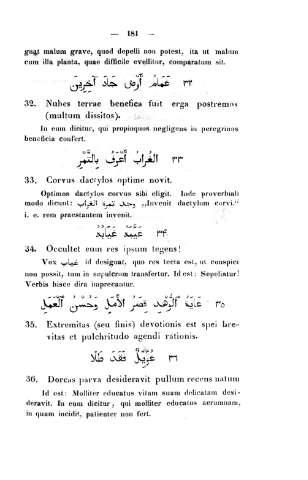 — 181 —
gnat malum grave, quod depelli non potest, ita ut malum
cum illa planta, quae difficile evellitur, comparatum sit.
٣٢ غَمَامُ أَرْضٍ جَادَ آخَرِينَ
32. Nubes terrae benefica fuit erga postremos
(multum dissitos).
In eum dicitur, qui propinquos negligens in peregrinos
beneficia confert.
٣٣ الغُرَابُ أَعْرَفُ بِالتَّمْرِ
33. Corvus dactylos optime novit.
Optimos dactylos corvus sibi eligit. Inde proverbiali
modo dicunt: وجد تمرة الغراب „Invenit dactylum corvi.“
i. e. rem praestantem invenit.
٣٤
34. Occultet eum res ipsum tegens!
Vox غياب id designat, quo res tecta est, ut conspici
non possit, tum in sepulcrum transfertur. Id est: Sepeliatur!
Verbis hisce dira imprecantur.
٣٥ غَايَةُ الزُّهْدِ قِصَرُ الأَمَلِ وَحُسْنُ العَمَلِ
35. Extremitas (seu finis) devotionis est spei bre-
vitas et pulchritudo agendi rationis.
٣٦ غُزَيِّلٌ فَقَدَ طَلًا
36. Dorcas parva desideravit pullum recens natum
Id est: Molliter educatus vitam suam delicatam desi-
deravit. In eum dicitur, qui molliter educatus aerumnam,
in quam incidit, patienter non fert.